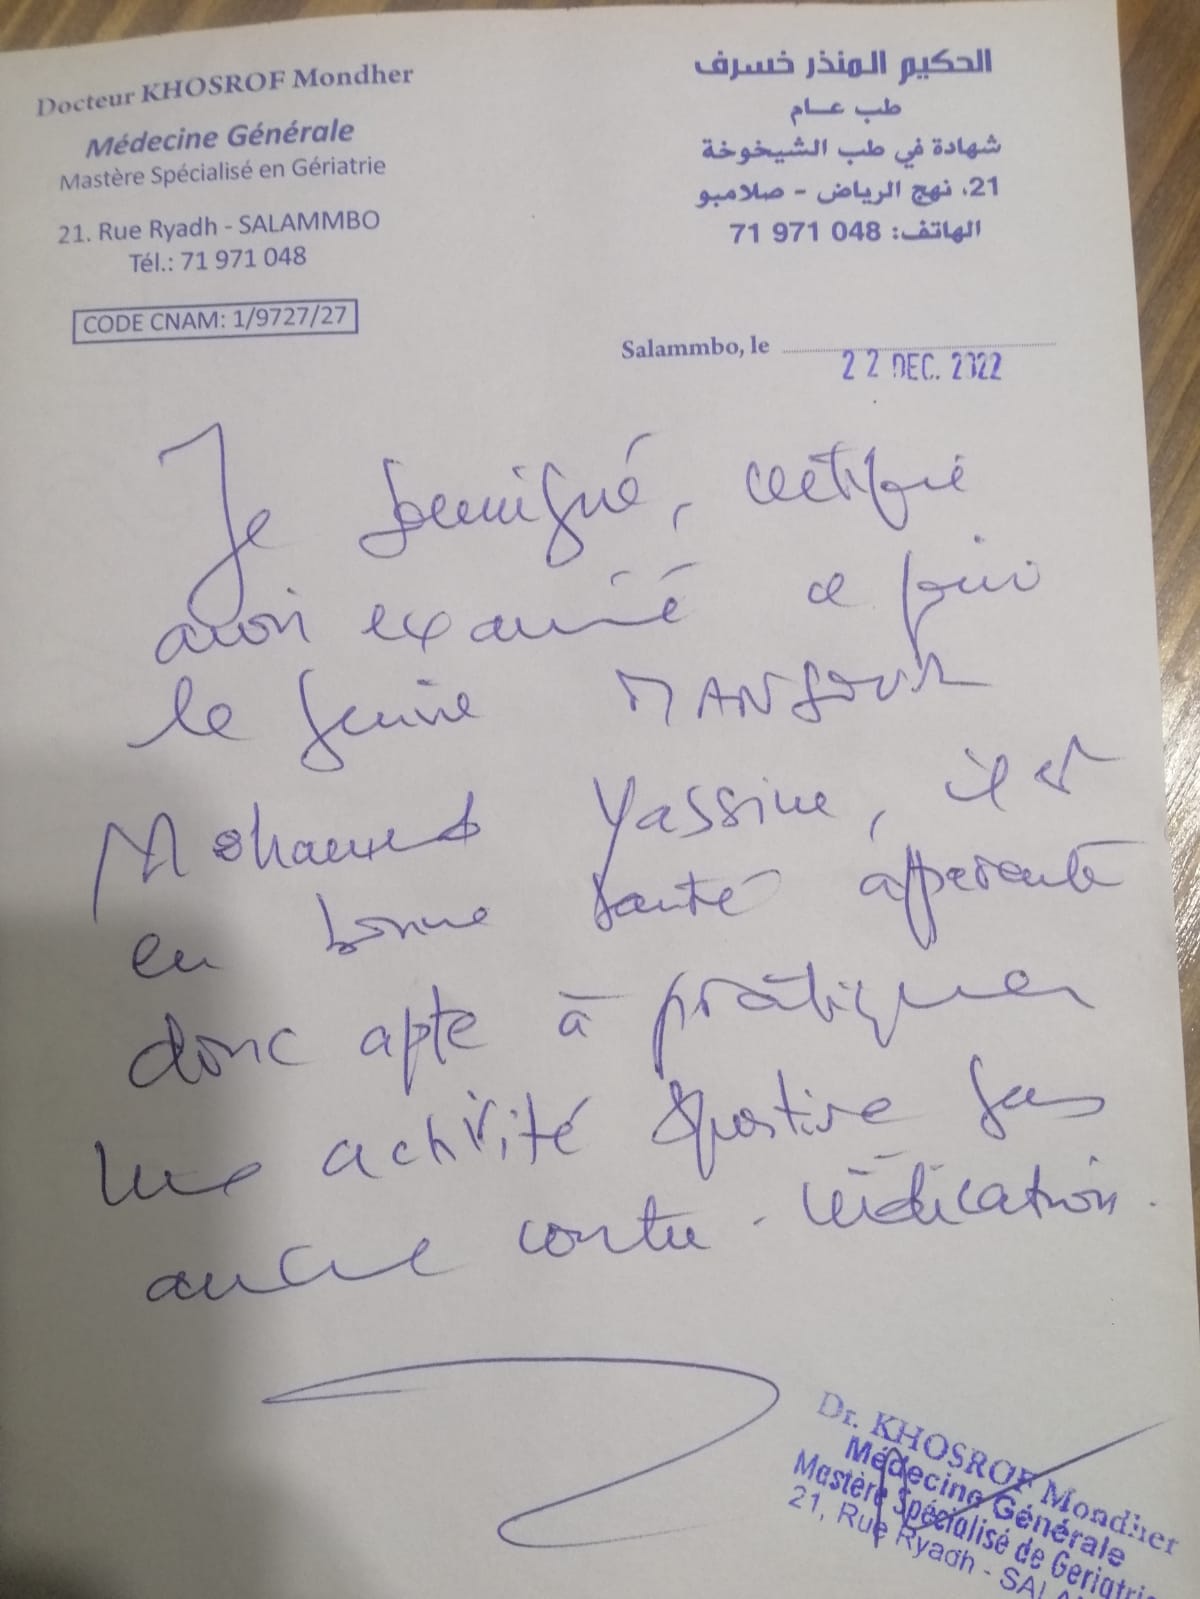 Docteur KHOSROF Mondher
Médecine Générale
Mastère Spécialisé en Gériatrie
21. Rue Ryadh - SALAMMBO
Tél.: 71 971 048
CODE CNAM: 1/9727/27
الحكيم المنذر خسرف
طب عـــام
شهادة في طب الشيخوخة
21، نهج الرياض - صلامبو
الهاتف: 048 971 71
Salammbo, le
22 DEC. 2022
Je soussigné, certifie
avoir examiné ce jour
le jeune MANSOUR
Mohamed Yassine, il est
en bonne santé apparente
donc apte à pratiquer
une activité sportive sans
aucune contre-indication.
Dr. KHOSROF Mondher
Médecine Générale
Mastère Spécialisé de Geriatrie
21, Rue Ryadh - SALA